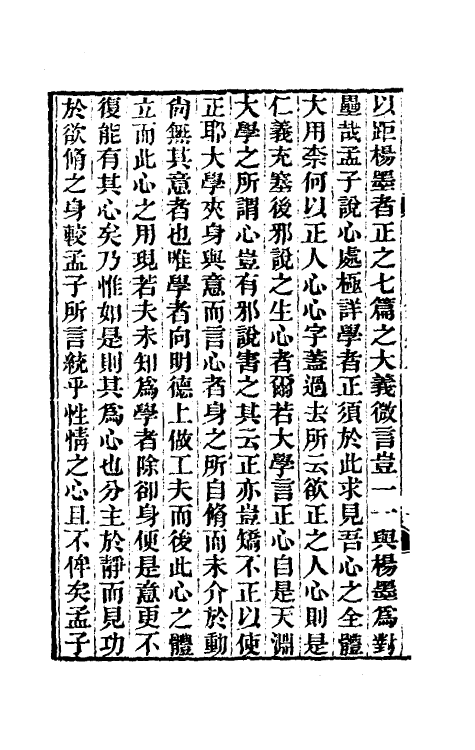 以距楊墨者正之七篇之大義微言豈一一與楊墨爲對
壘哉孟子說心處極詳學者正須於此求見吾心之全體
大用柰何以正人心心字蓋過去所云欲正之人心則是
仁義充塞後邪說之生心者爾若大學言正心自是天淵
大學之所謂心豈有邪說害之其云正亦豈矯不正以使
正耶大學夾身與意而言心者身之所自脩而未介於動
尙無其意者也唯學者向明德上做工夫而後此心之體
立而此心之用現若夫未知爲學者除卻身便是意更不
復能有其心矣乃惟如是則其爲心也分主於靜而見功
於欲脩之身較孟子所言統乎性情之心且不侔矣孟子